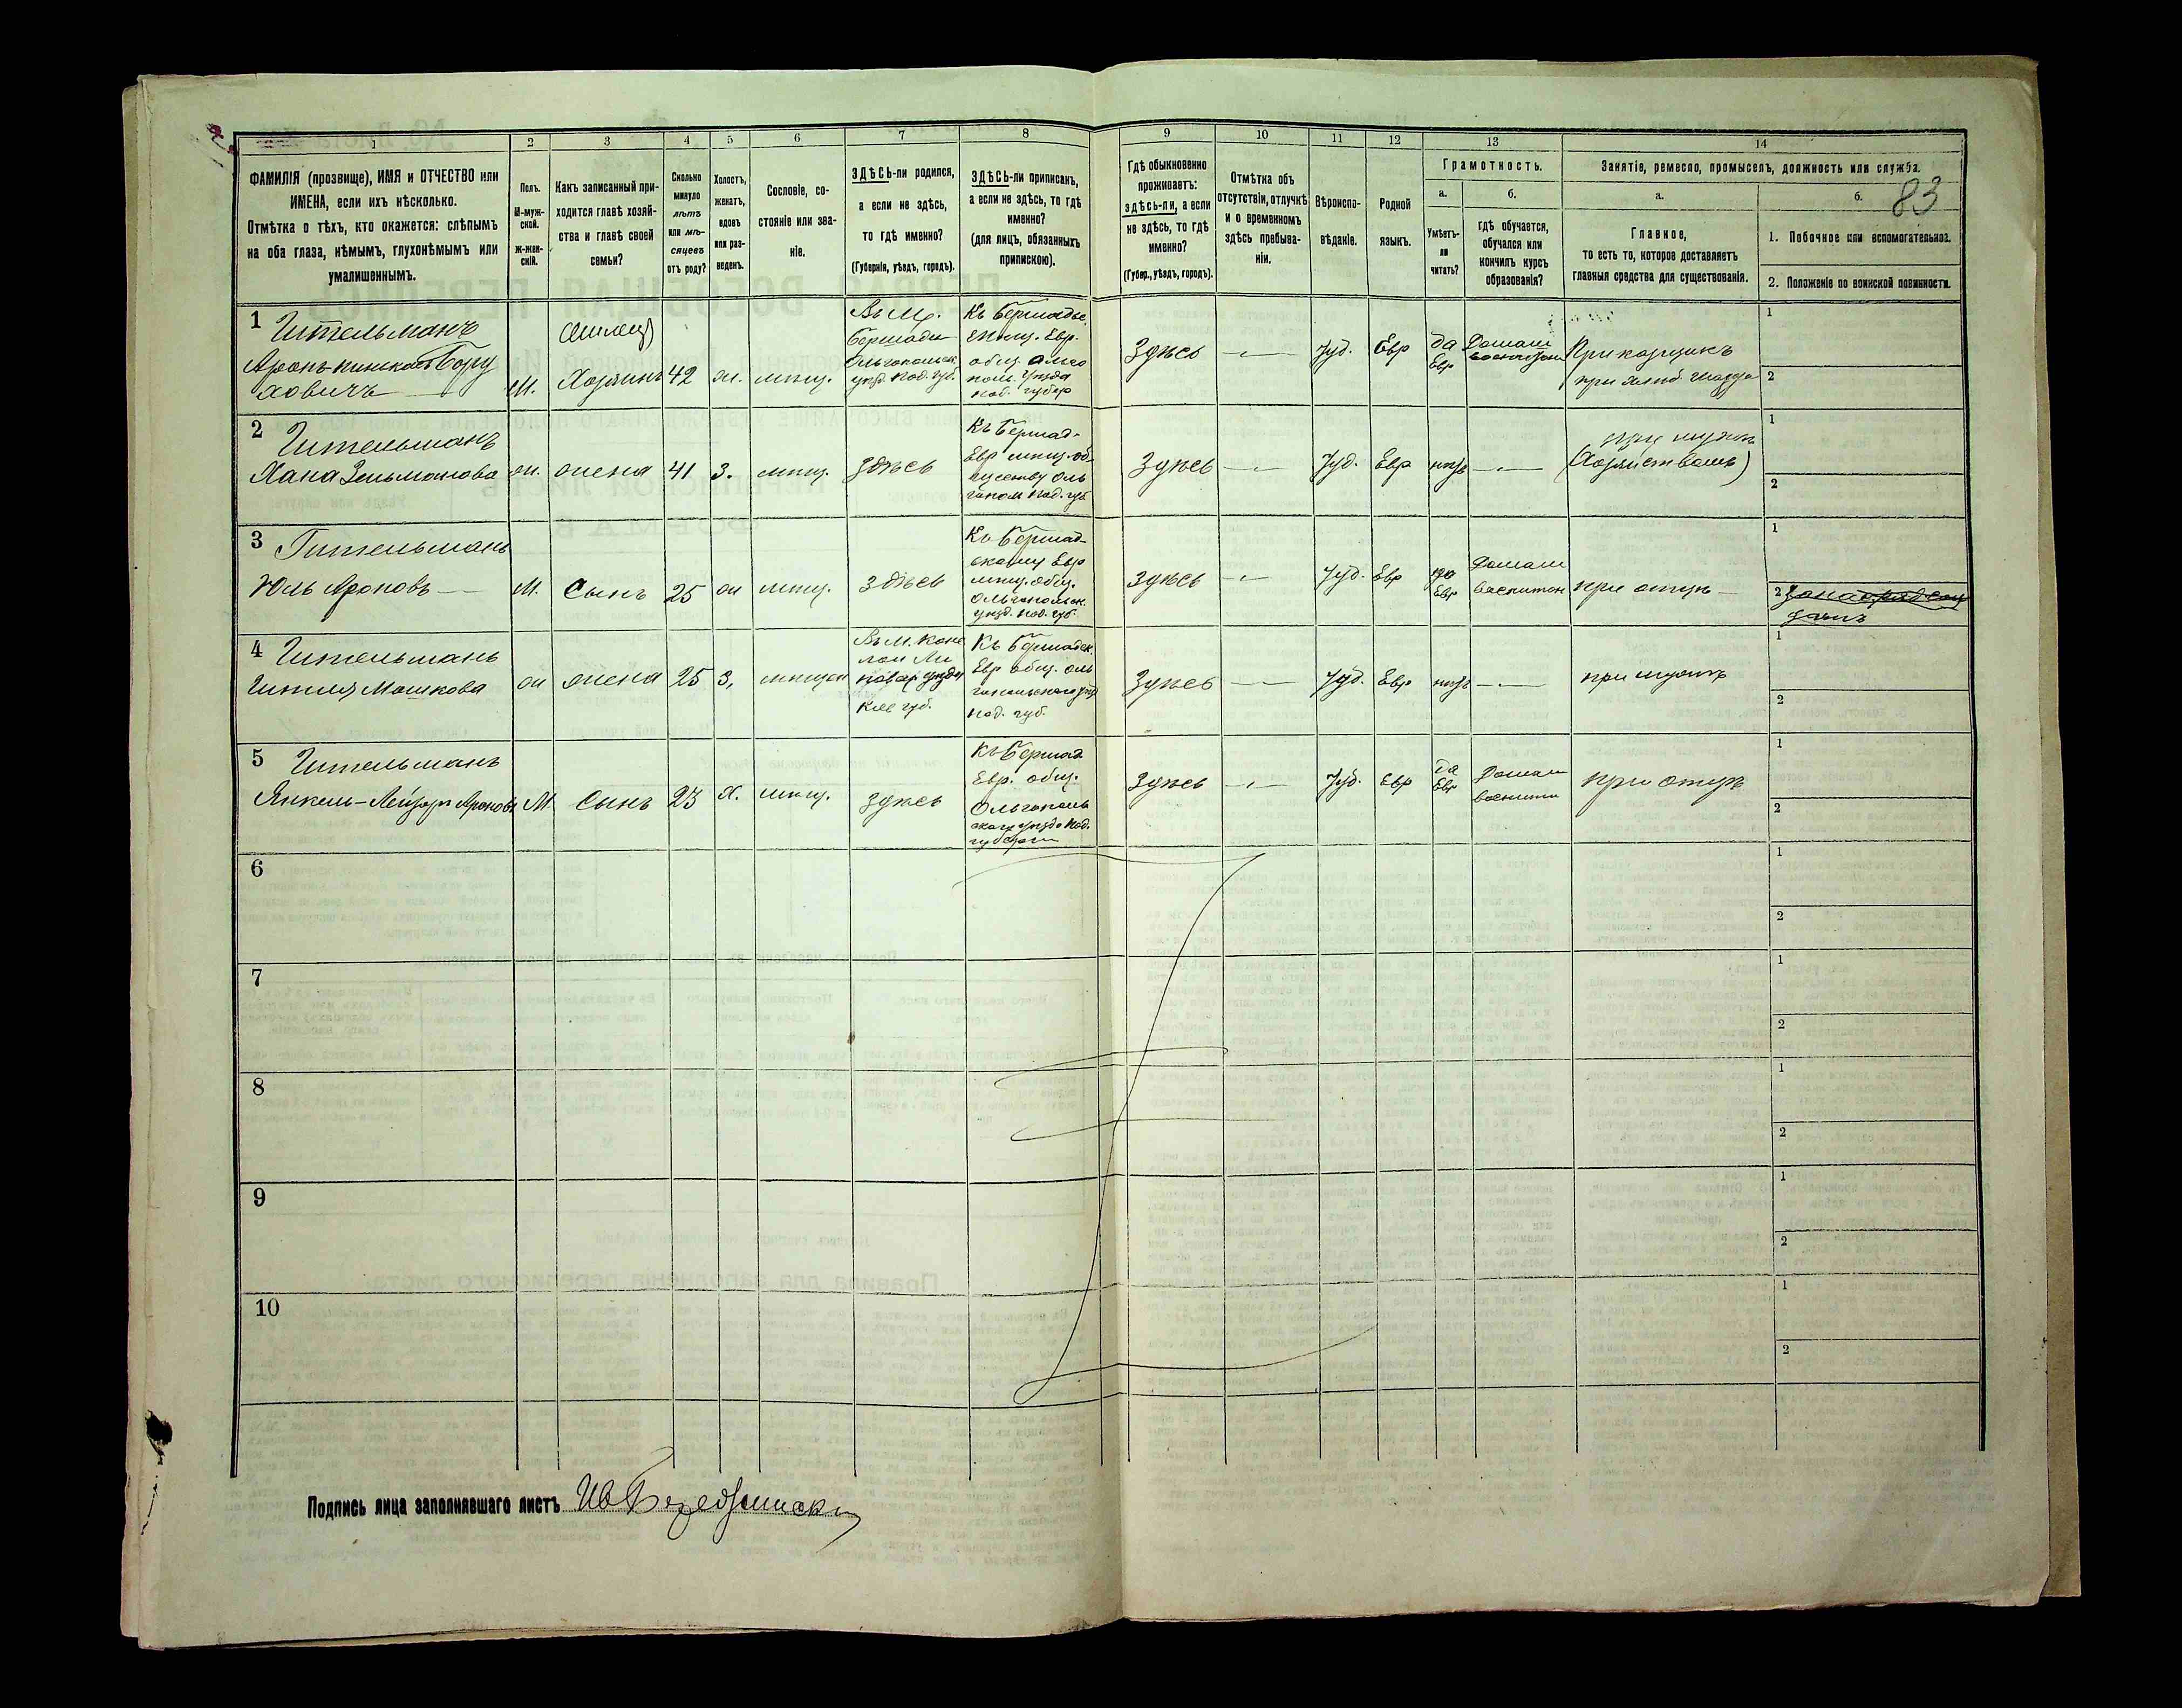 1 2 3 4 5 6 7 8 9 10 11 12 13 14
83
ФАМИЛІЯ (прозвище), ИМЯ и ОТЧЕСТВО или
ИМЕНА, если ихъ нѣсколько.
Отмѣтка о тѣхъ, кто окажется: слѣпымъ
на оба глаза, нѣмымъ, глухонѣмымъ или
умалишеннымъ.
Полъ.
М-муж-
ской.
ж-жен-
скій.
Какъ записанный при-
ходится главѣ хозяй-
ства и главѣ своей
семьи?
Сколько
минуло
лѣтъ
или мѣ-
сяцевъ
отъ роду?
Холостъ,
женатъ,
вдовъ
или раз-
веденъ.
Сословіе, со-
стояніе или зва-
ніе.
ЗДѢСЬ-ли родился,
а если не здѣсь,
то гдѣ именно?
(Губернія, уѣздъ, городъ).
ЗДѢСЬ-ли приписанъ,
а если не здѣсь, то гдѣ
именно?
(для лицъ, обязанныхъ
припискою).
Гдѣ обыкновенно
проживаетъ:
здѣсь-ли, а если
не здѣсь, то гдѣ
именно?
(Губер., уѣздъ, городъ).
Отмѣтка объ
отсутствіи, отлучкѣ
и о временномъ
здѣсь пребыва-
ніи.
Вѣроиспо-
вѣданіе.
Родной
языкъ.
Грамотность.
а.
Умѣетъ-
ли
читать?
б.
Гдѣ обучается,
обучался или
кончилъ курсъ
образованія?
Занятіе, ремесло, промыселъ, должность или служба.
а.
Главное,
то есть то, которое доставляетъ
главныя средства для существованія.
б.
1. Побочное или вспомогательное.
2. Положеніе по воинской повинности.
1 Гительманъ
Аронъ-Пинкасъ Бору
ховичъ
М.
Хозяинъ
42
ж.
мѣщ.
Въ М.
Бершади
Ольгопольск.
уѣзд. Под. губ.
Здѣсь
Іуд.
Евр
да
Евр
Домаш
Прикащикъ
1
2
2 Гительманъ
Хана Зельманова
ж.
жена
41
з.
мѣщ.
здѣсь
Къ Бершад-
Евр мѣщ. об-
ществу Оль
гопол Под. губ
Здѣсь
Іуд.
Евр
нѣтъ
при мужѣ
(Хозяйствомъ)
1
2
3 Гительманъ
Юль Ароновъ
М.
Сынъ
25
ж
мѣщ.
здѣсь
Къ Бершад-
скому Евр
мѣщ. общ.
Ольгопольск.
уѣзд. Под. губ.
здѣсь
Іуд.
Евр
да
Евр
Домаш
воспитан
при отцѣ
1
2
4 Гительманъ
Гитля Мошкова
ж
жена
25
з.
мѣщан
Къ Бершадск.
Евр общ. Оль
гопольскаго уѣзд
Под. губ.
Здѣсь
Іуд.
Евр
нѣтъ
при мужѣ
1
2
5 Гительманъ
Янкель-Лейзеръ Ароновъ
М
Сынъ
23
х.
мѣщ.
здѣсь
Къ Бершад
Евр. общ.
Ольгополь
скаго уѣзда Под.
губерніи
Здѣсь
Іуд.
Евр
Да
Евр
Домаш
воспита
при отцѣ
1
2
6 1
2
7 1
2
8 1
2
9 1
2
10 1
2
Подпись лица заполнявшаго листъ